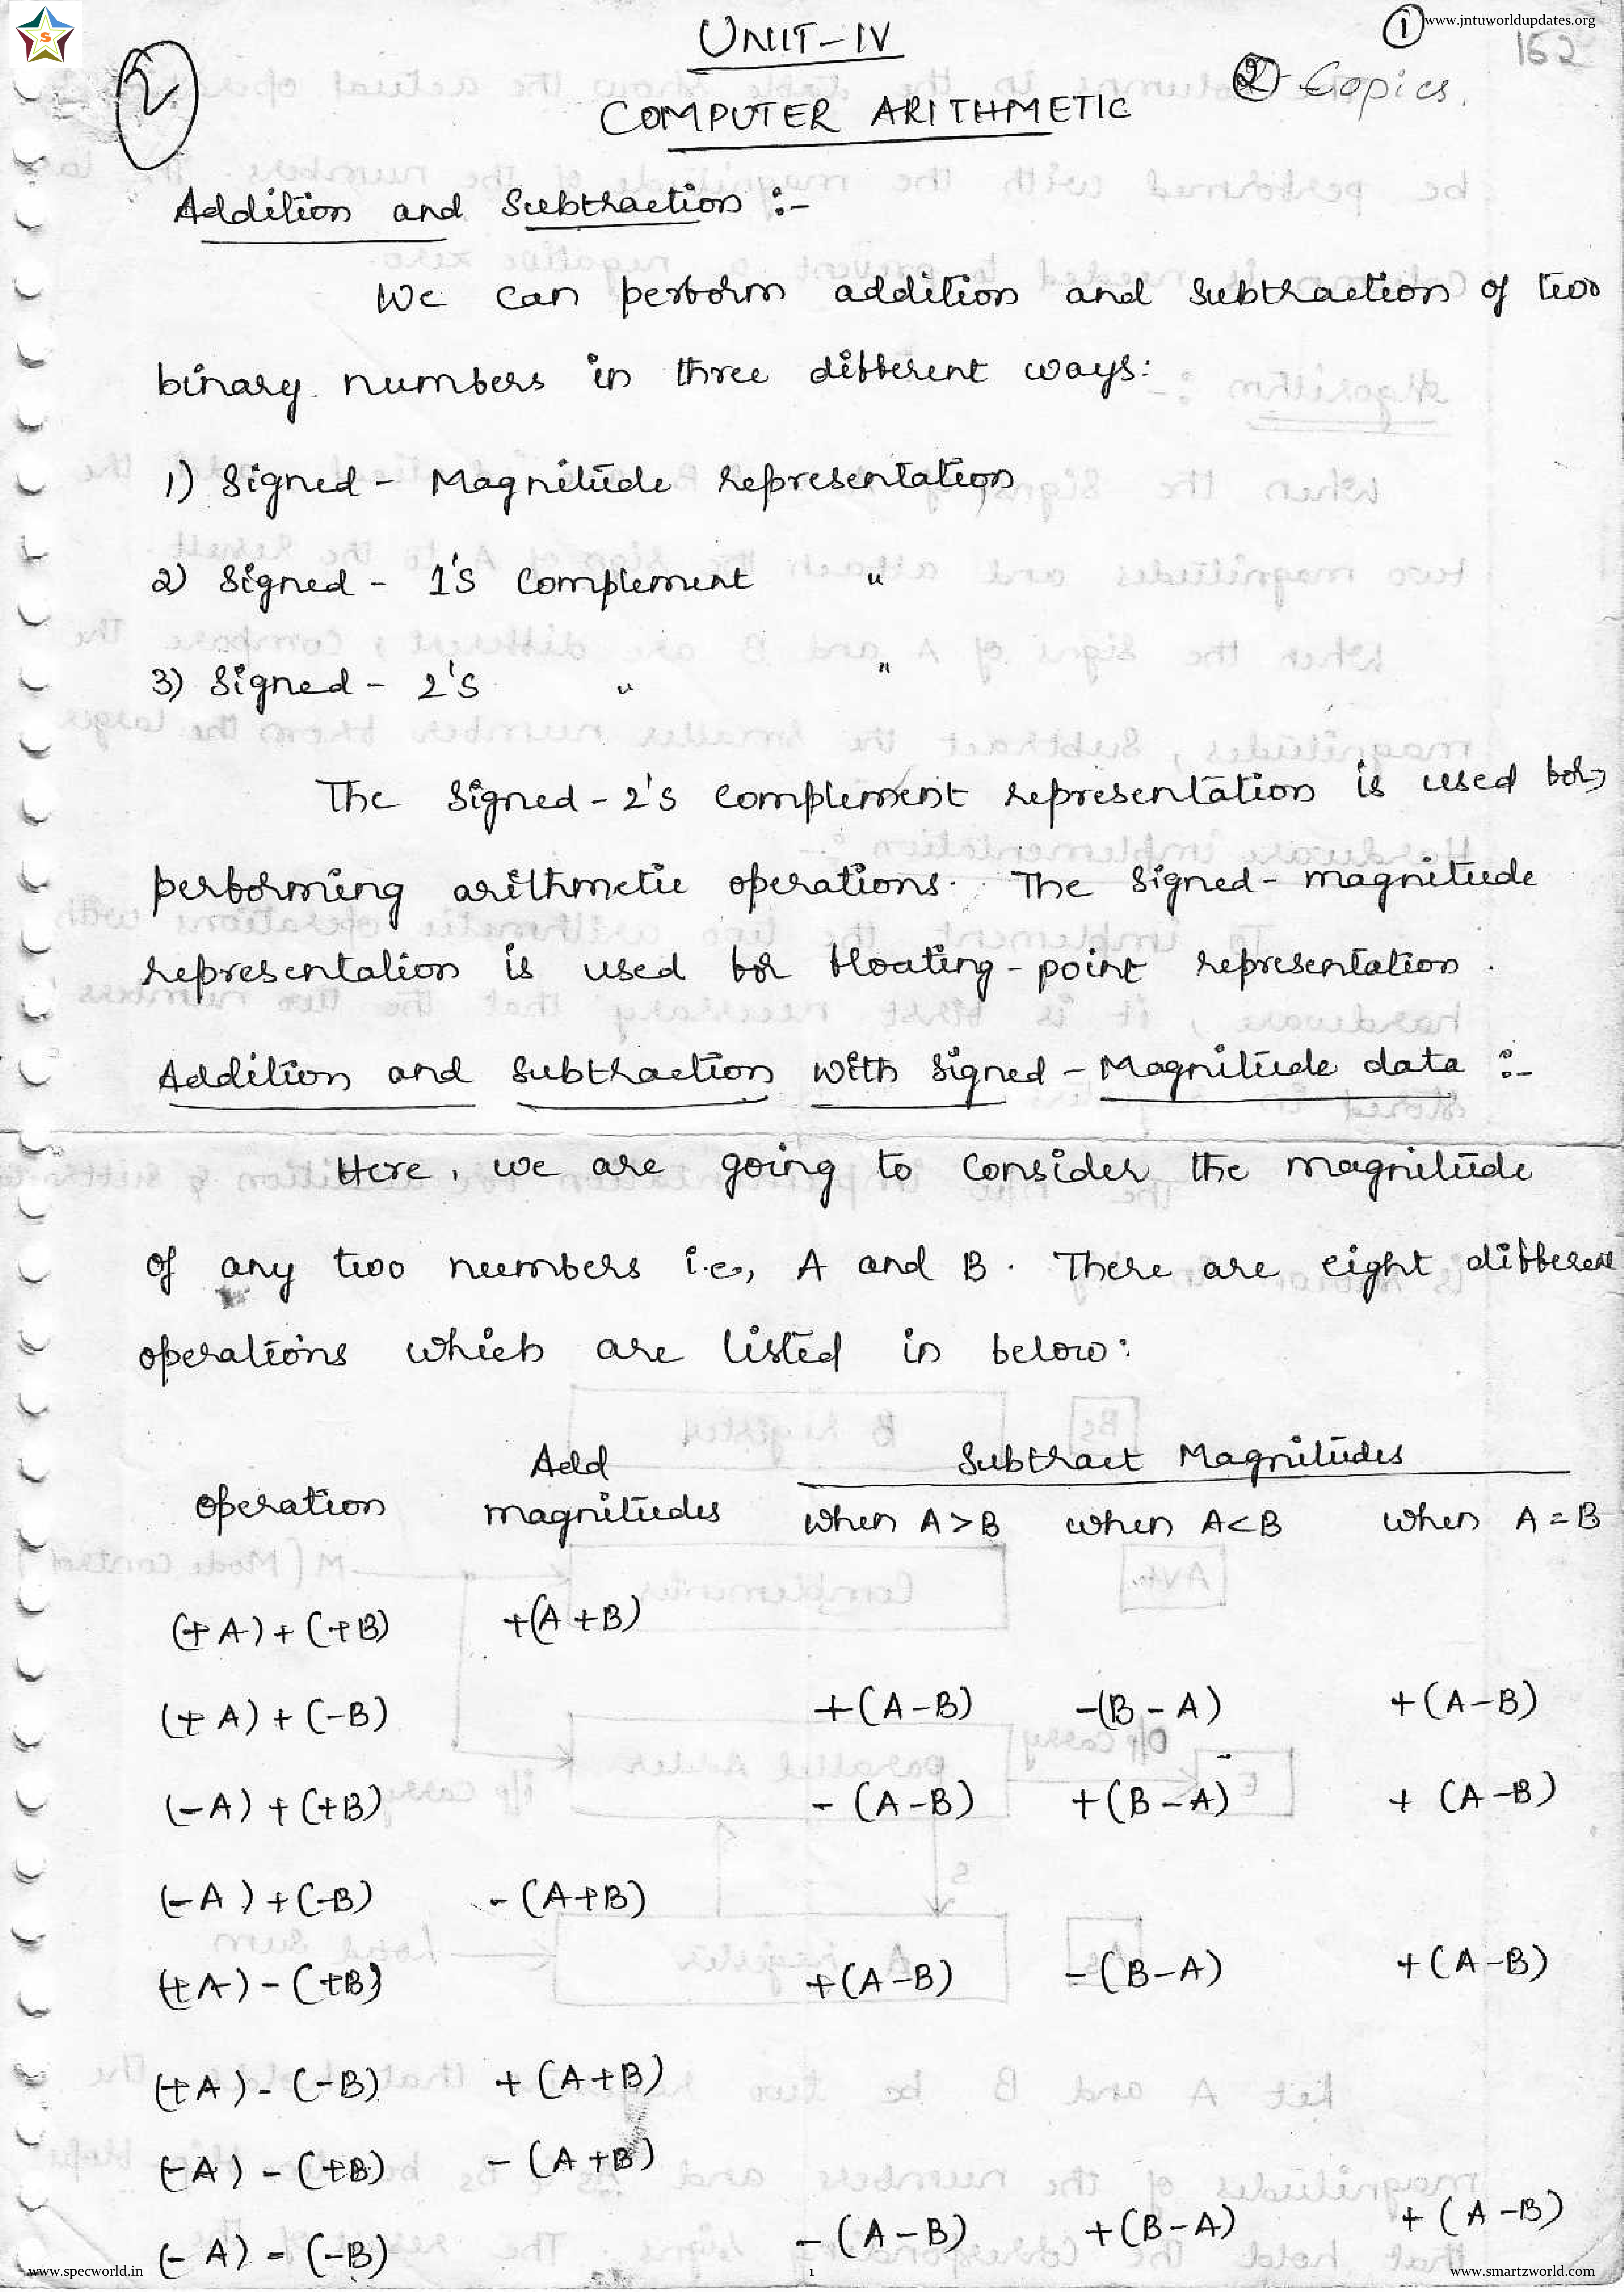 www.jntuworldupdates.org
1
152
S
UNIT-IV
2
2 Copies.
COMPUTER ARITHMETIC
Addition and Subtraction :-
We can perform addition and subtraction of two
binary numbers in three different ways:
1) Signed - Magnitude representation
2) Signed - 1's complement "
3) Signed - 2's " "
The signed-2's complement representation is used for
performing arithmetic operations. The signed-magnitude
representation is used for floating-point representation.
Addition and subtraction with signed-Magnitude data :-
Here, we are going to consider the magnitude
of any two numbers i.e., A and B. There are eight different
operations which are listed in below:
Operation Add magnitudes Subtract Magnitudes
when A>B when A<B when A=B
(+A)+(+B) +(A+B)
(+A)+(-B) +(A-B) -(B-A) +(A-B)
(-A)+(+B) -(A-B) +(B-A) +(A-B)
(-A)+(-B) -(A+B)
(+A)-(+B) +(A-B) -(B-A) +(A-B)
(+A)-(-B) +(A+B)
(-A)-(+B) -(A+B)
(-A)-(-B) -(A-B) +(B-A) +(A-B)
www.specworld.in 1 www.smartzworld.com